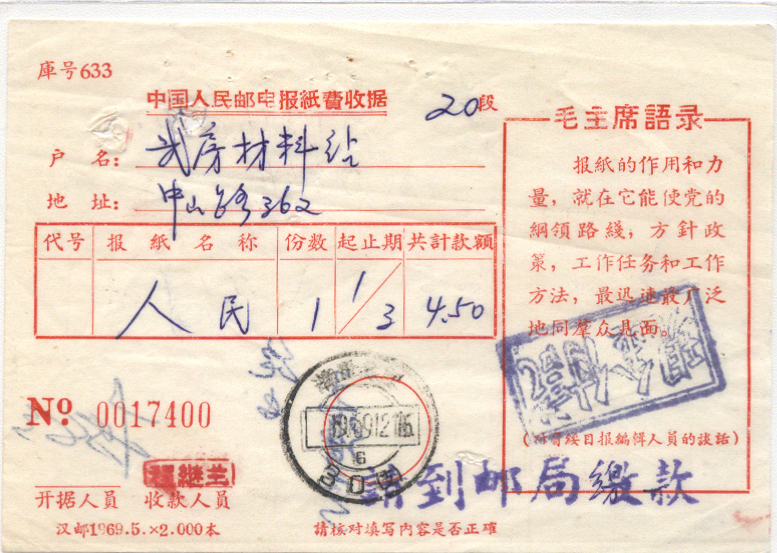 库号633
中国人民邮电报紙費收据
20段
户 名: 武房材料站
地 址: 中山路362
代号 报紙名称 份数 起止期 共計款額
人民 1 1/3 4.50
毛主席語录
报紙的作用和力
量，就在它能使党的
綱領路綫，方針政
策，工作任务和工作
方法，最迅速最广泛
地同羣众見面。
(对晋綏日报編輯人员的談話)
No 0017400
30
程继兰
請到邮局缴款
开据人员 收款人员
汉邮1969.5.×2.000本
請核对填写内容是否正確